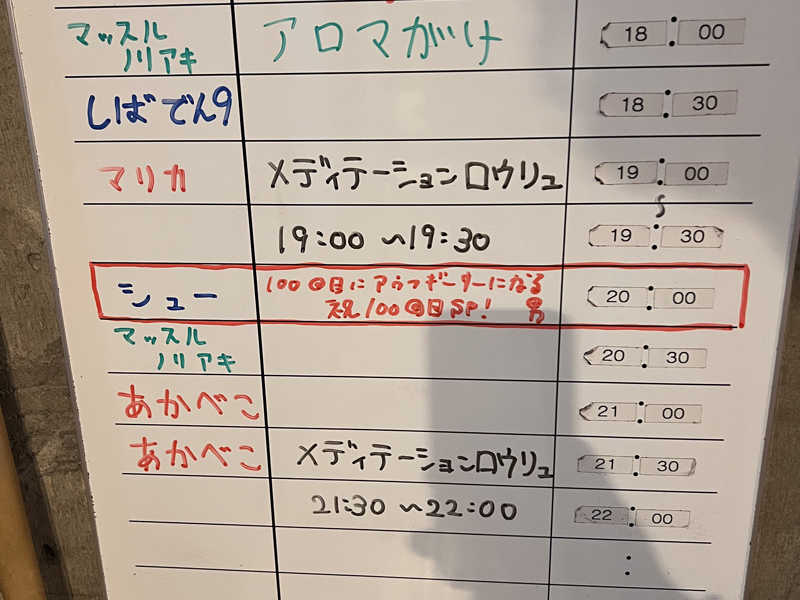 マッスル
ノリアキ アロマがけ 18:00
しばでん9 18:30
マリカ メディテーションロウリュ 19:00
〜
19:00 〜19:30 19:30
シュー 100回目にアウフギーサーになる 20:00
祝100回目SP! 男
マッスル
ノリアキ 20:30
あかべこ 21:00
あかべこ メディテーションロウリュ 21:30
21:30 〜22:00 22:00
: